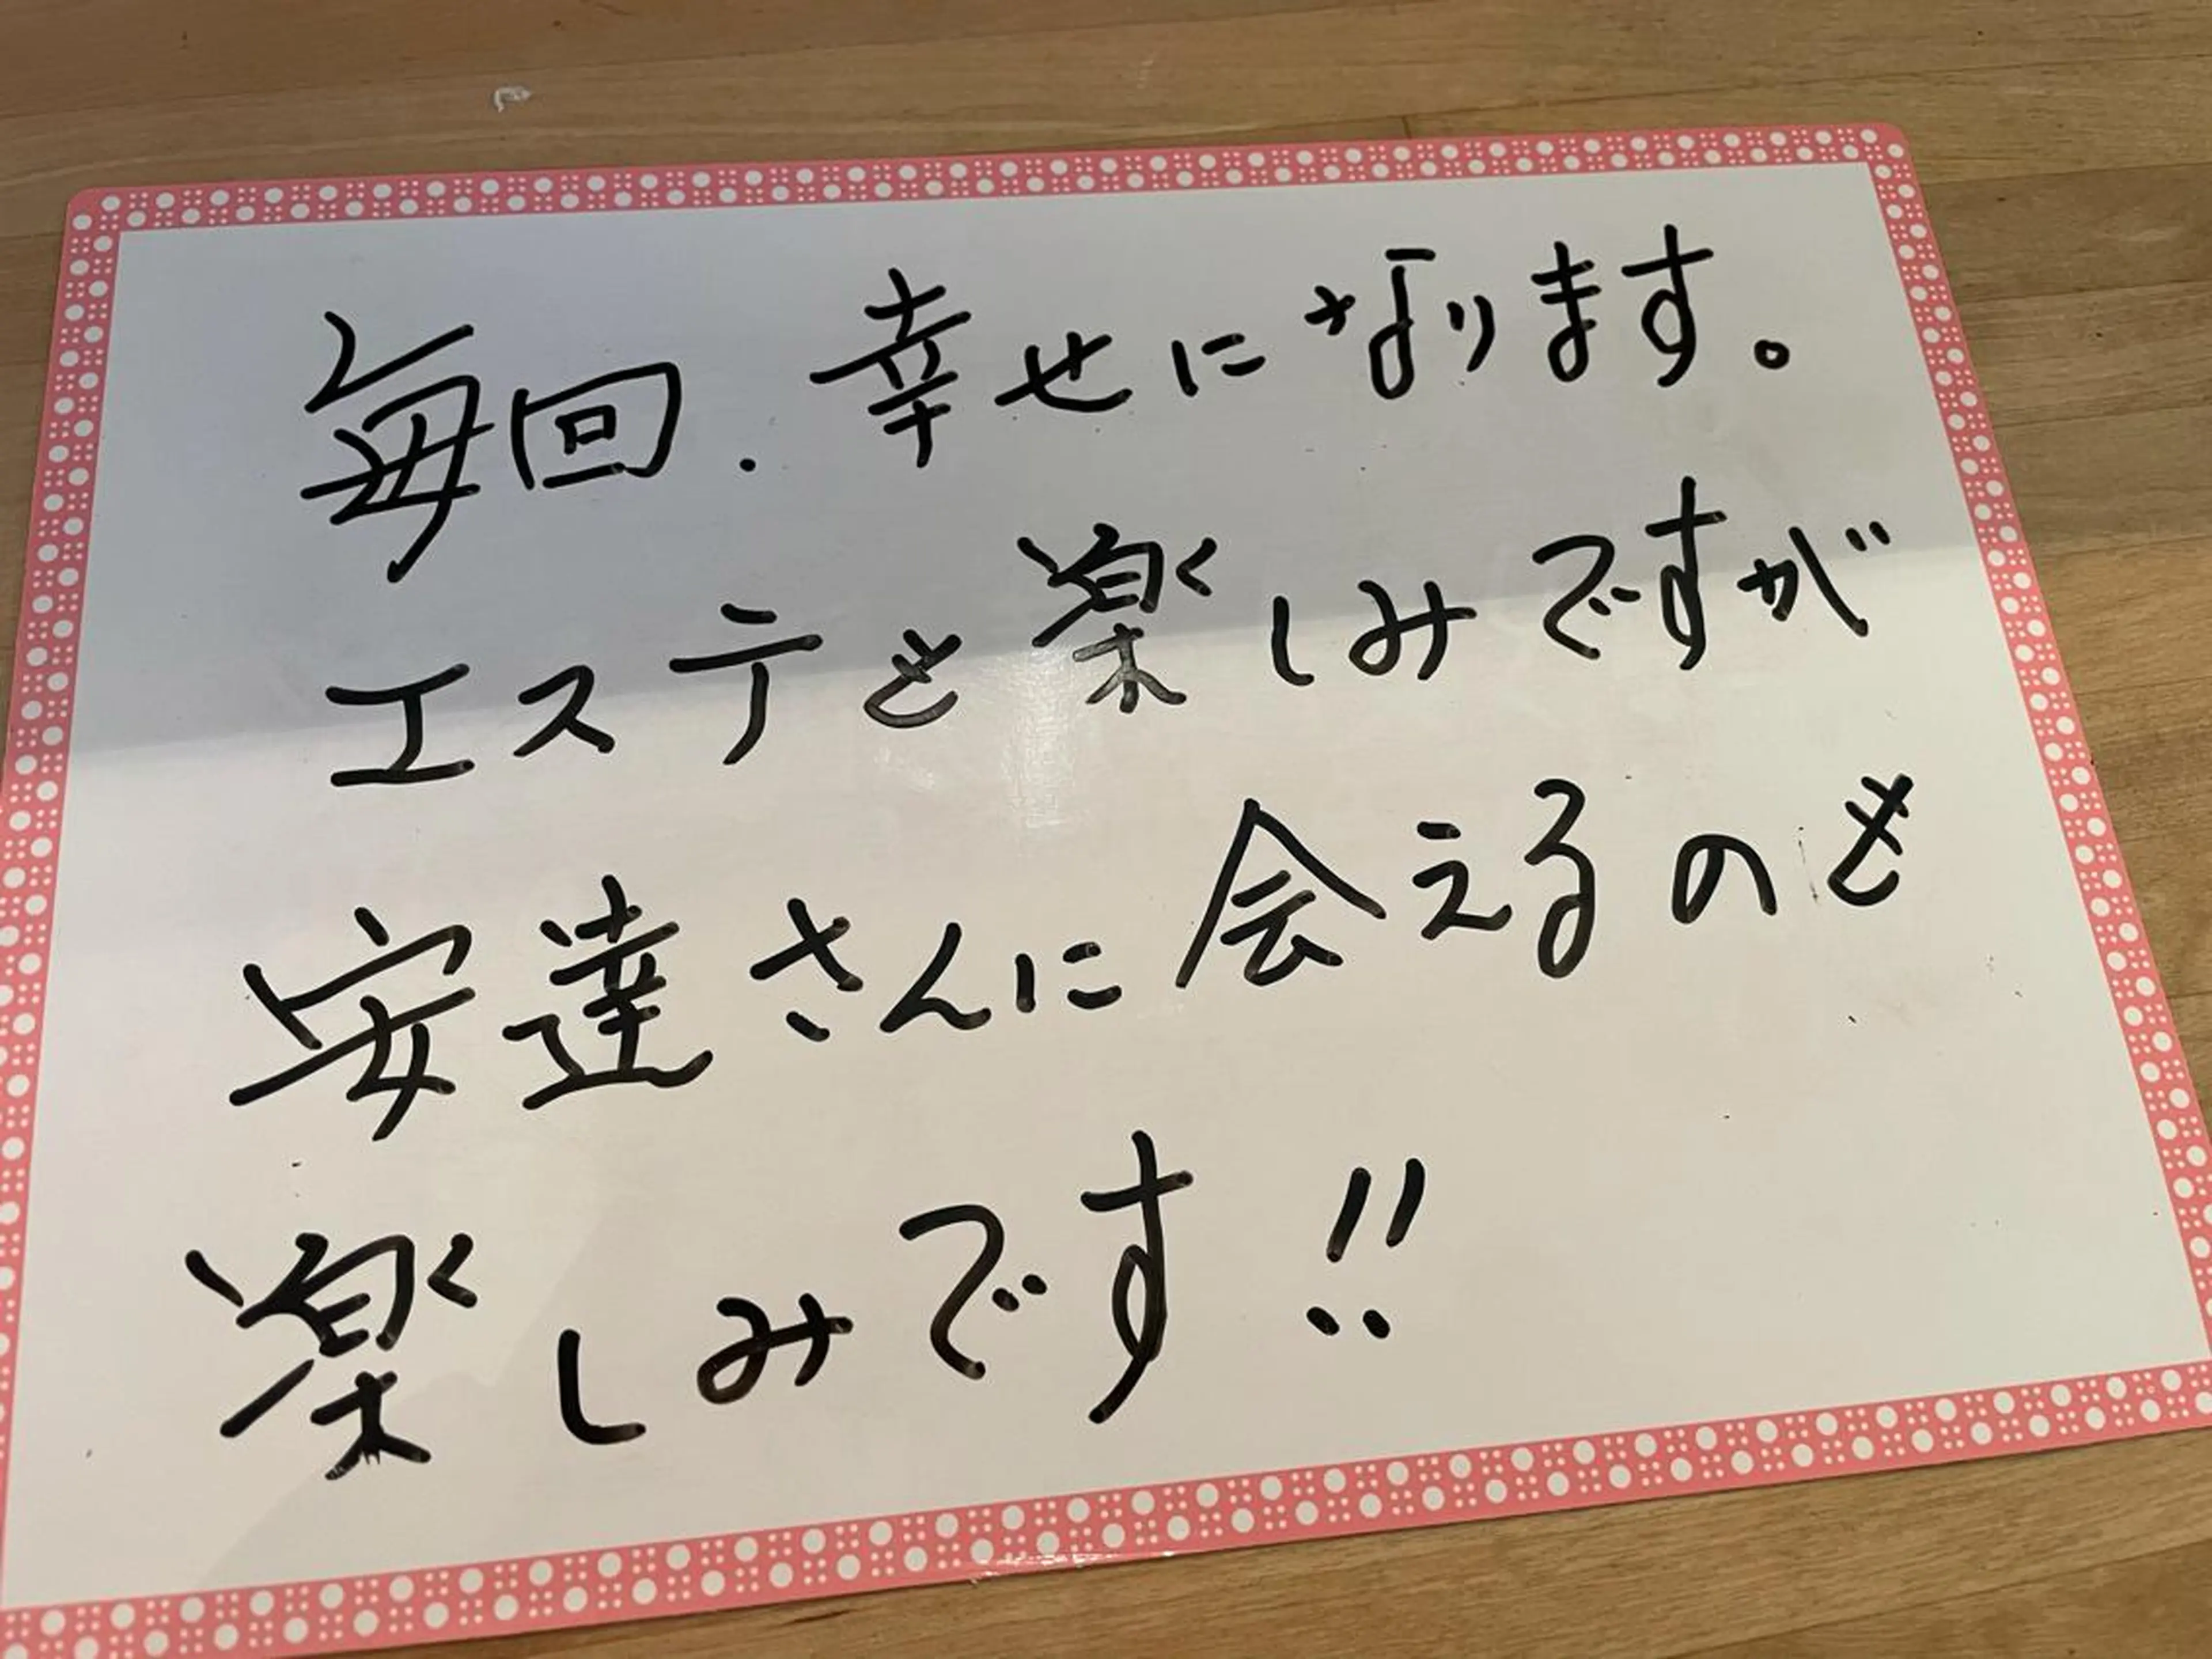 毎回.幸せになります。
エステも楽しみですが
安達さんに会えるのも
楽しみです!!